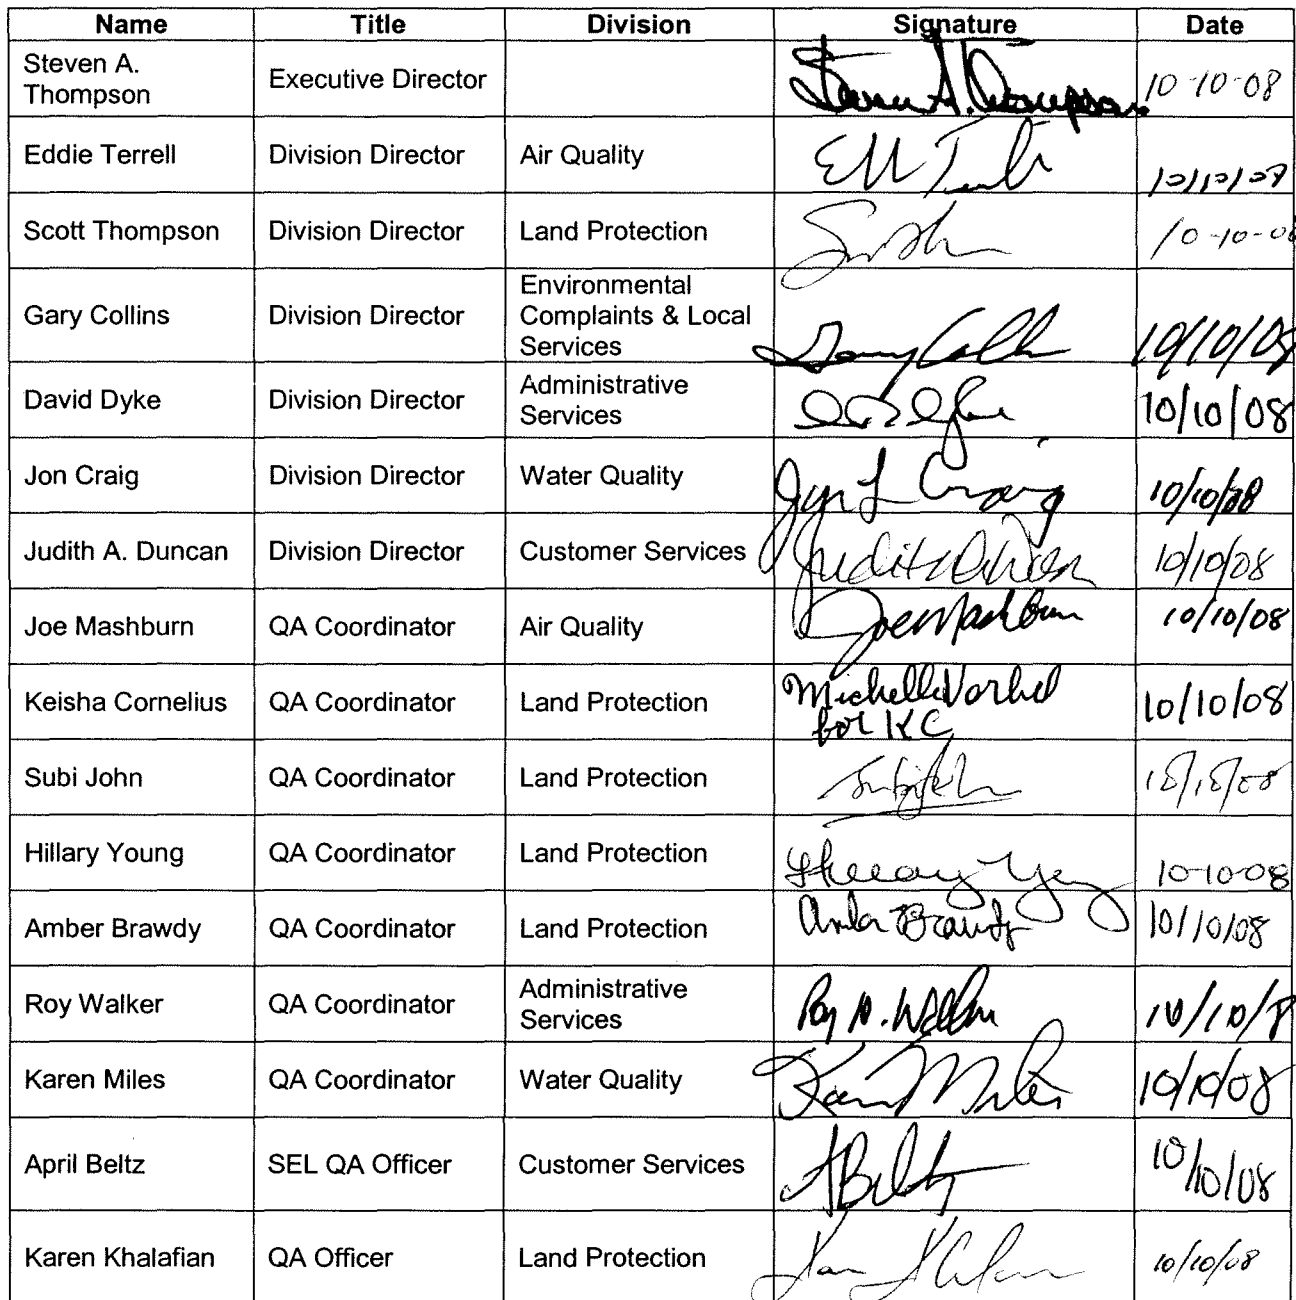 Name Title Division Signature Date
Steven A. Thompson Executive Director Steven A. Thompson 10-10-08
Eddie Terrell Division Director Air Quality 10/10/08
Scott Thompson Division Director Land Protection 10-10-08
Gary Collins Division Director Environmental Complaints & Local Services Gary Collins 10/10/08
David Dyke Division Director Administrative Services 10/10/08
Jon Craig Division Director Water Quality Jon L Craig 10/10/08
Judith A. Duncan Division Director Customer Services Judith Duncan 10/10/08
Joe Mashburn QA Coordinator Air Quality Joe Mashburn 10/10/08
Keisha Cornelius QA Coordinator Land Protection Michelle Vorhel for KC 10/10/08
Subi John QA Coordinator Land Protection Subi John 10/10/08
Hillary Young QA Coordinator Land Protection Hillary Young 10-10-08
Amber Brawdy QA Coordinator Land Protection Amber Brawdy 10/10/08
Roy Walker QA Coordinator Administrative Services Roy D. Walker 10/10/8
Karen Miles QA Coordinator Water Quality Karen Miles 10/10/08
April Beltz SEL QA Officer Customer Services A Beltz 10/10/08
Karen Khalafian QA Officer Land Protection 10/10/08